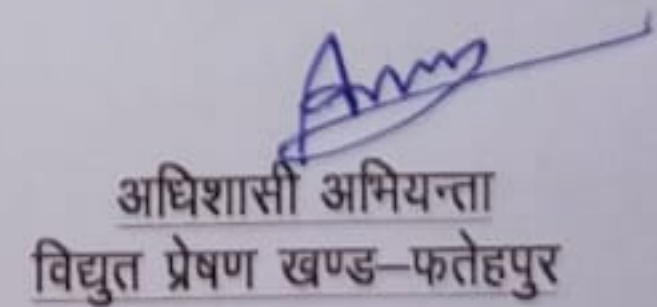 अधिशासी अभियन्ता
विद्युत प्रेषण खण्ड–फतेहपुर